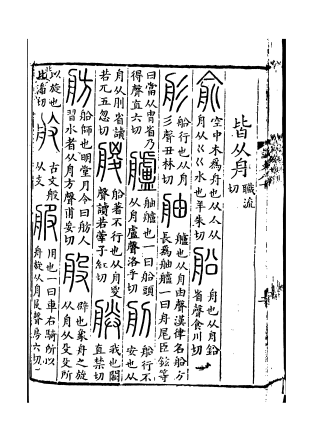 皆从舟 職流切
俞 空中木為舟也从亼从舟从巜巜水也羊朱切 船 舟也从舟鉛省聲食川切
彤 船行也从舟彡聲丑林切 舳 艫也从舟由聲漢律名船方長為舳艫一曰舟尾臣鉉等
曰當从胄省乃得聲直六切 艫 舳艫也一曰船頭从舟盧聲洛乎切 舠 船行不安也从
舟从刖省讀若兀五忽切 艐 船著不行也从舟㚇聲讀若䇸子紅切 朕 我也闕直禁切
舫 船師也明堂月令曰舫人習水者从舟方聲甫妄切 般 辟也象舟之旋从舟从殳殳所
以旋也北潘切 㪵 古文般从攴 服 用也一曰車右騎所以舟旋从舟𠬝聲房六切